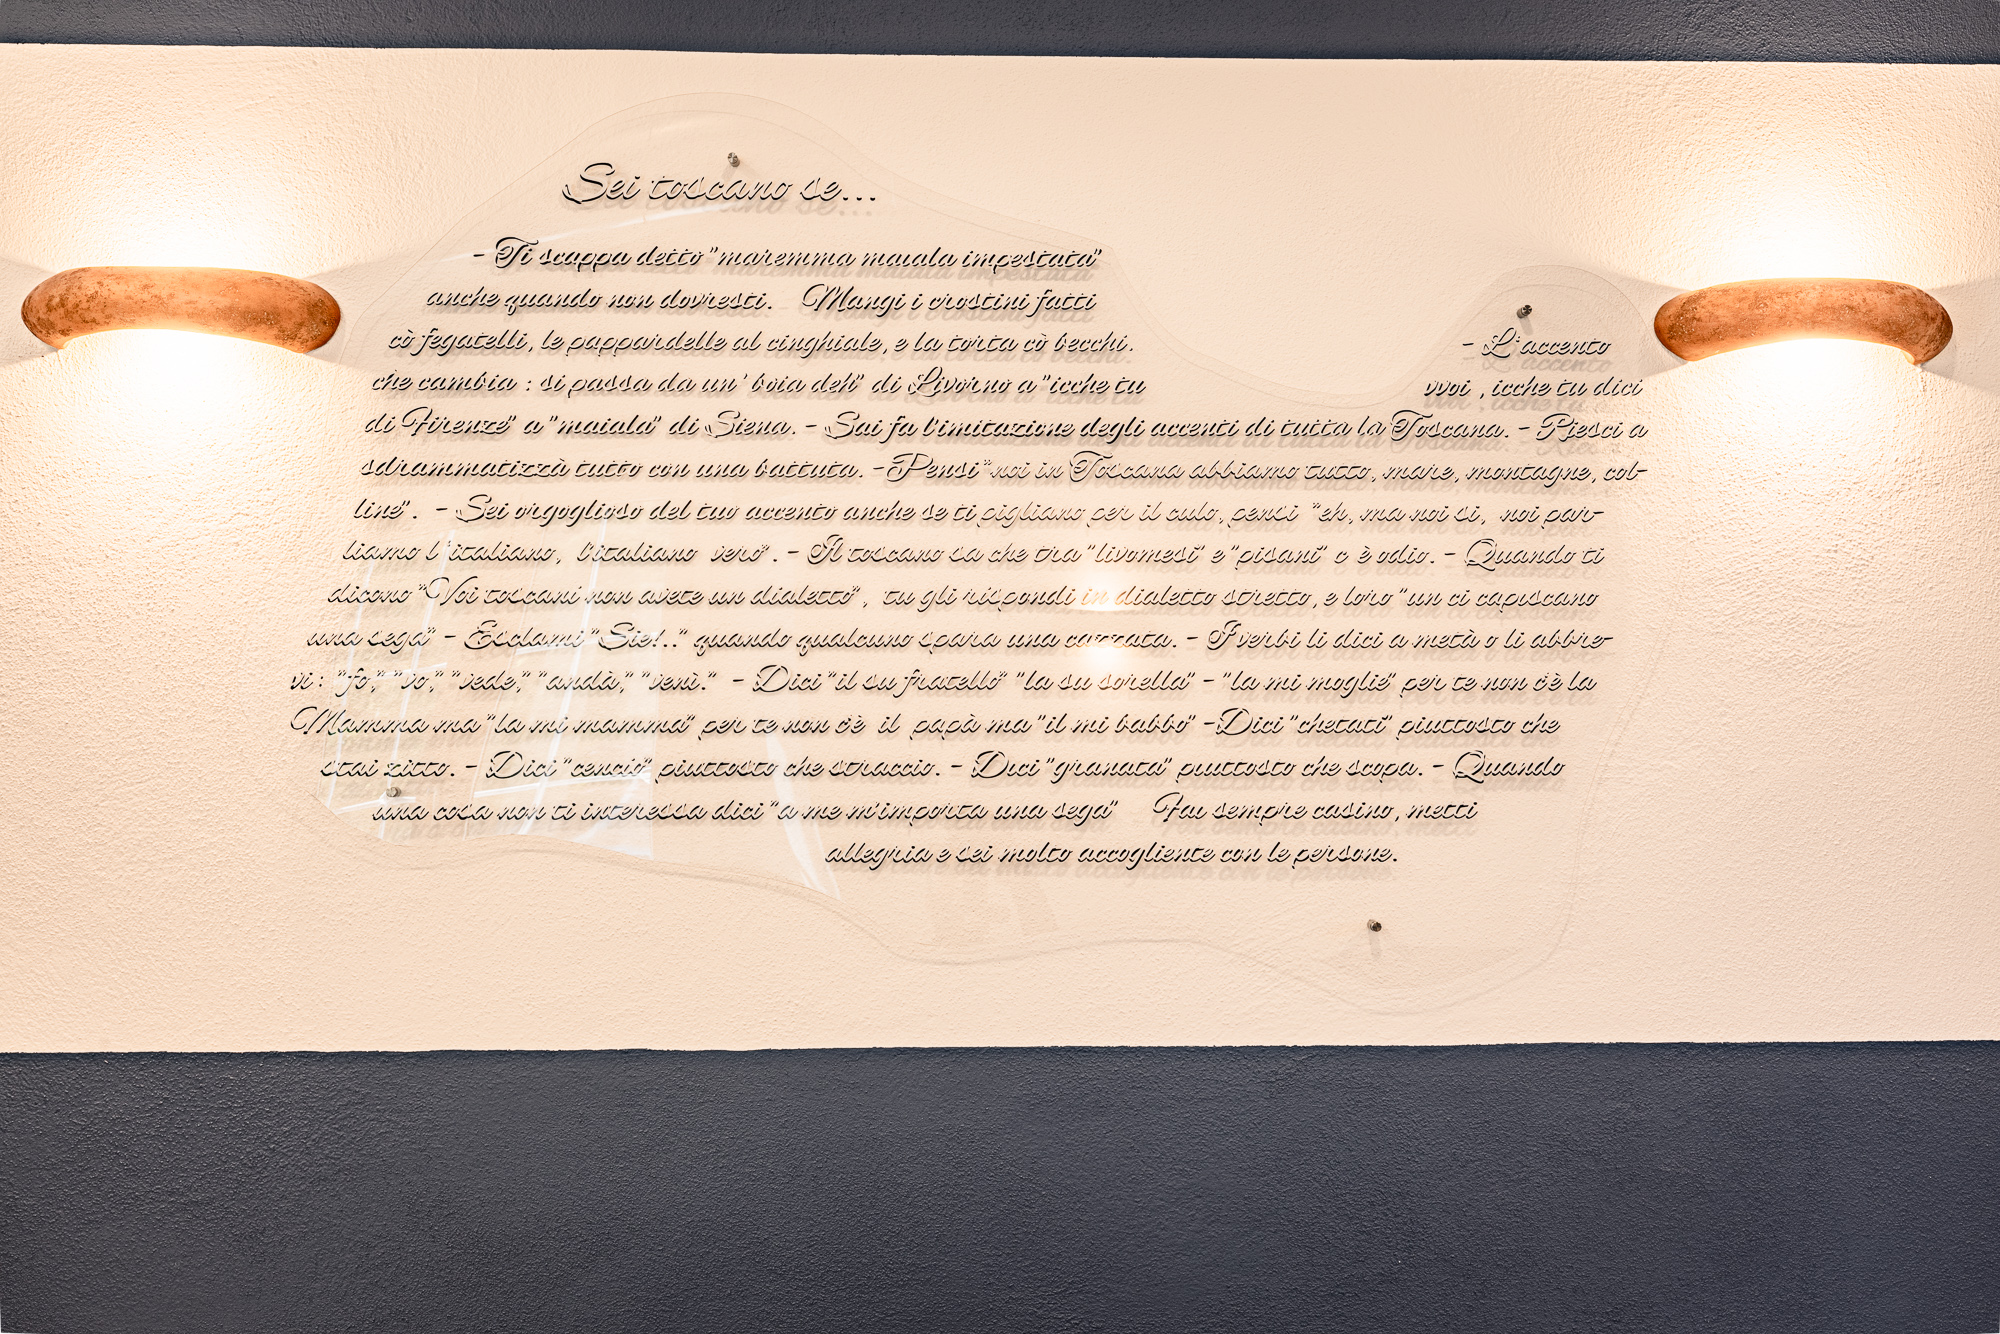 Sei toscano se...
- Ti scappa detto "maremma maiala impestata"
anche quando non dovresti. Mangi i crostini fatti
cò fegatelli, le pappardelle al cinghiale, e la torta cò becchi. - L'accento
che cambia : si passa da un' boia deh" di Livorno a "icche tu vvoi , icche tu dici
di Firenze" a "maiala" di Siena. - Sai fa l'imitazione degli accenti di tutta la Toscana. - Riesci a
sdrammatizzà tutto con una battuta. - Pensi "noi in Toscana abbiamo tutto, mare, montagne, col-
line". - Sei orgoglioso del tuo accento anche se ti pigliano per il culo, pensi "eh, ma noi si, noi par-
liamo l'italiano, l'italiano vero". - Il toscano sa che tra "livornesi" e "pisani" c è odio. - Quando ti
dicono "Voi toscani non avete un dialetto", tu gli rispondi in dialetto stretto, e loro "un ci capiscano
una sega" - Esclami "Sie!.." quando qualcuno spara una cazzata. - I verbi li dici a metà o li abbre-
vi : "fo," "vo," "vede," "andà," "venì." - Dici "il su fratello" "la su sorella" - "la mi moglie" per te non c'è la
Mamma ma "la mi mamma" per te non c'è il papà ma "il mi babbo" -Dici "chetati" piuttosto che
stai zitto. - Dici "cencio" piuttosto che straccio. - Dici "granata" piuttosto che scopa. - Quando
una cosa non ti interessa dici "a me m'importa una sega" Fai sempre casino, metti
allegria e sei molto accogliente con le persone.